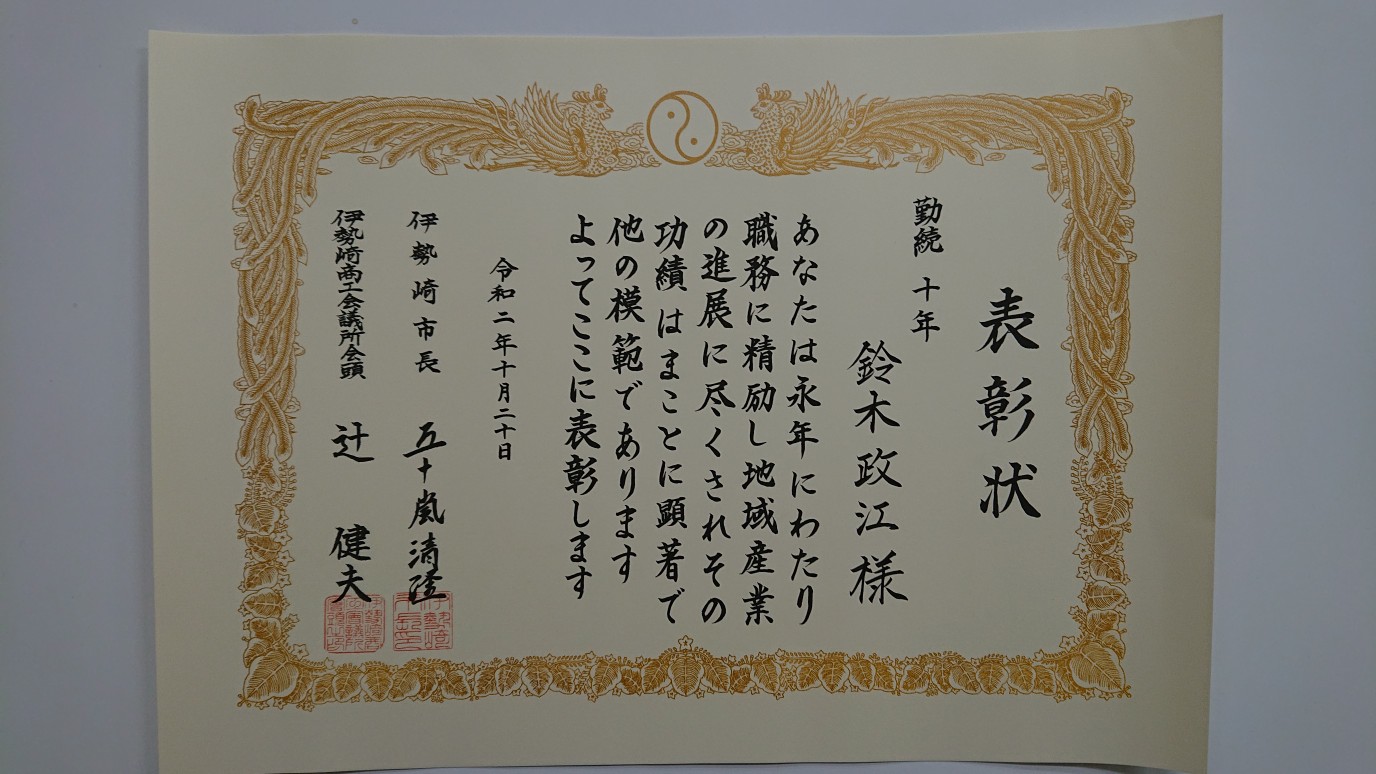 表彰状
勤続 十年
鈴木政江様
あなたは永年にわたり
職務に精励し地域産業
の進展に尽くされその
功績はまことに顕著で
他の模範であります
よってここに表彰します
令和二年十月二十日
伊勢崎市長 五十嵐清隆
伊勢崎商工会議所会頭 辻 健夫